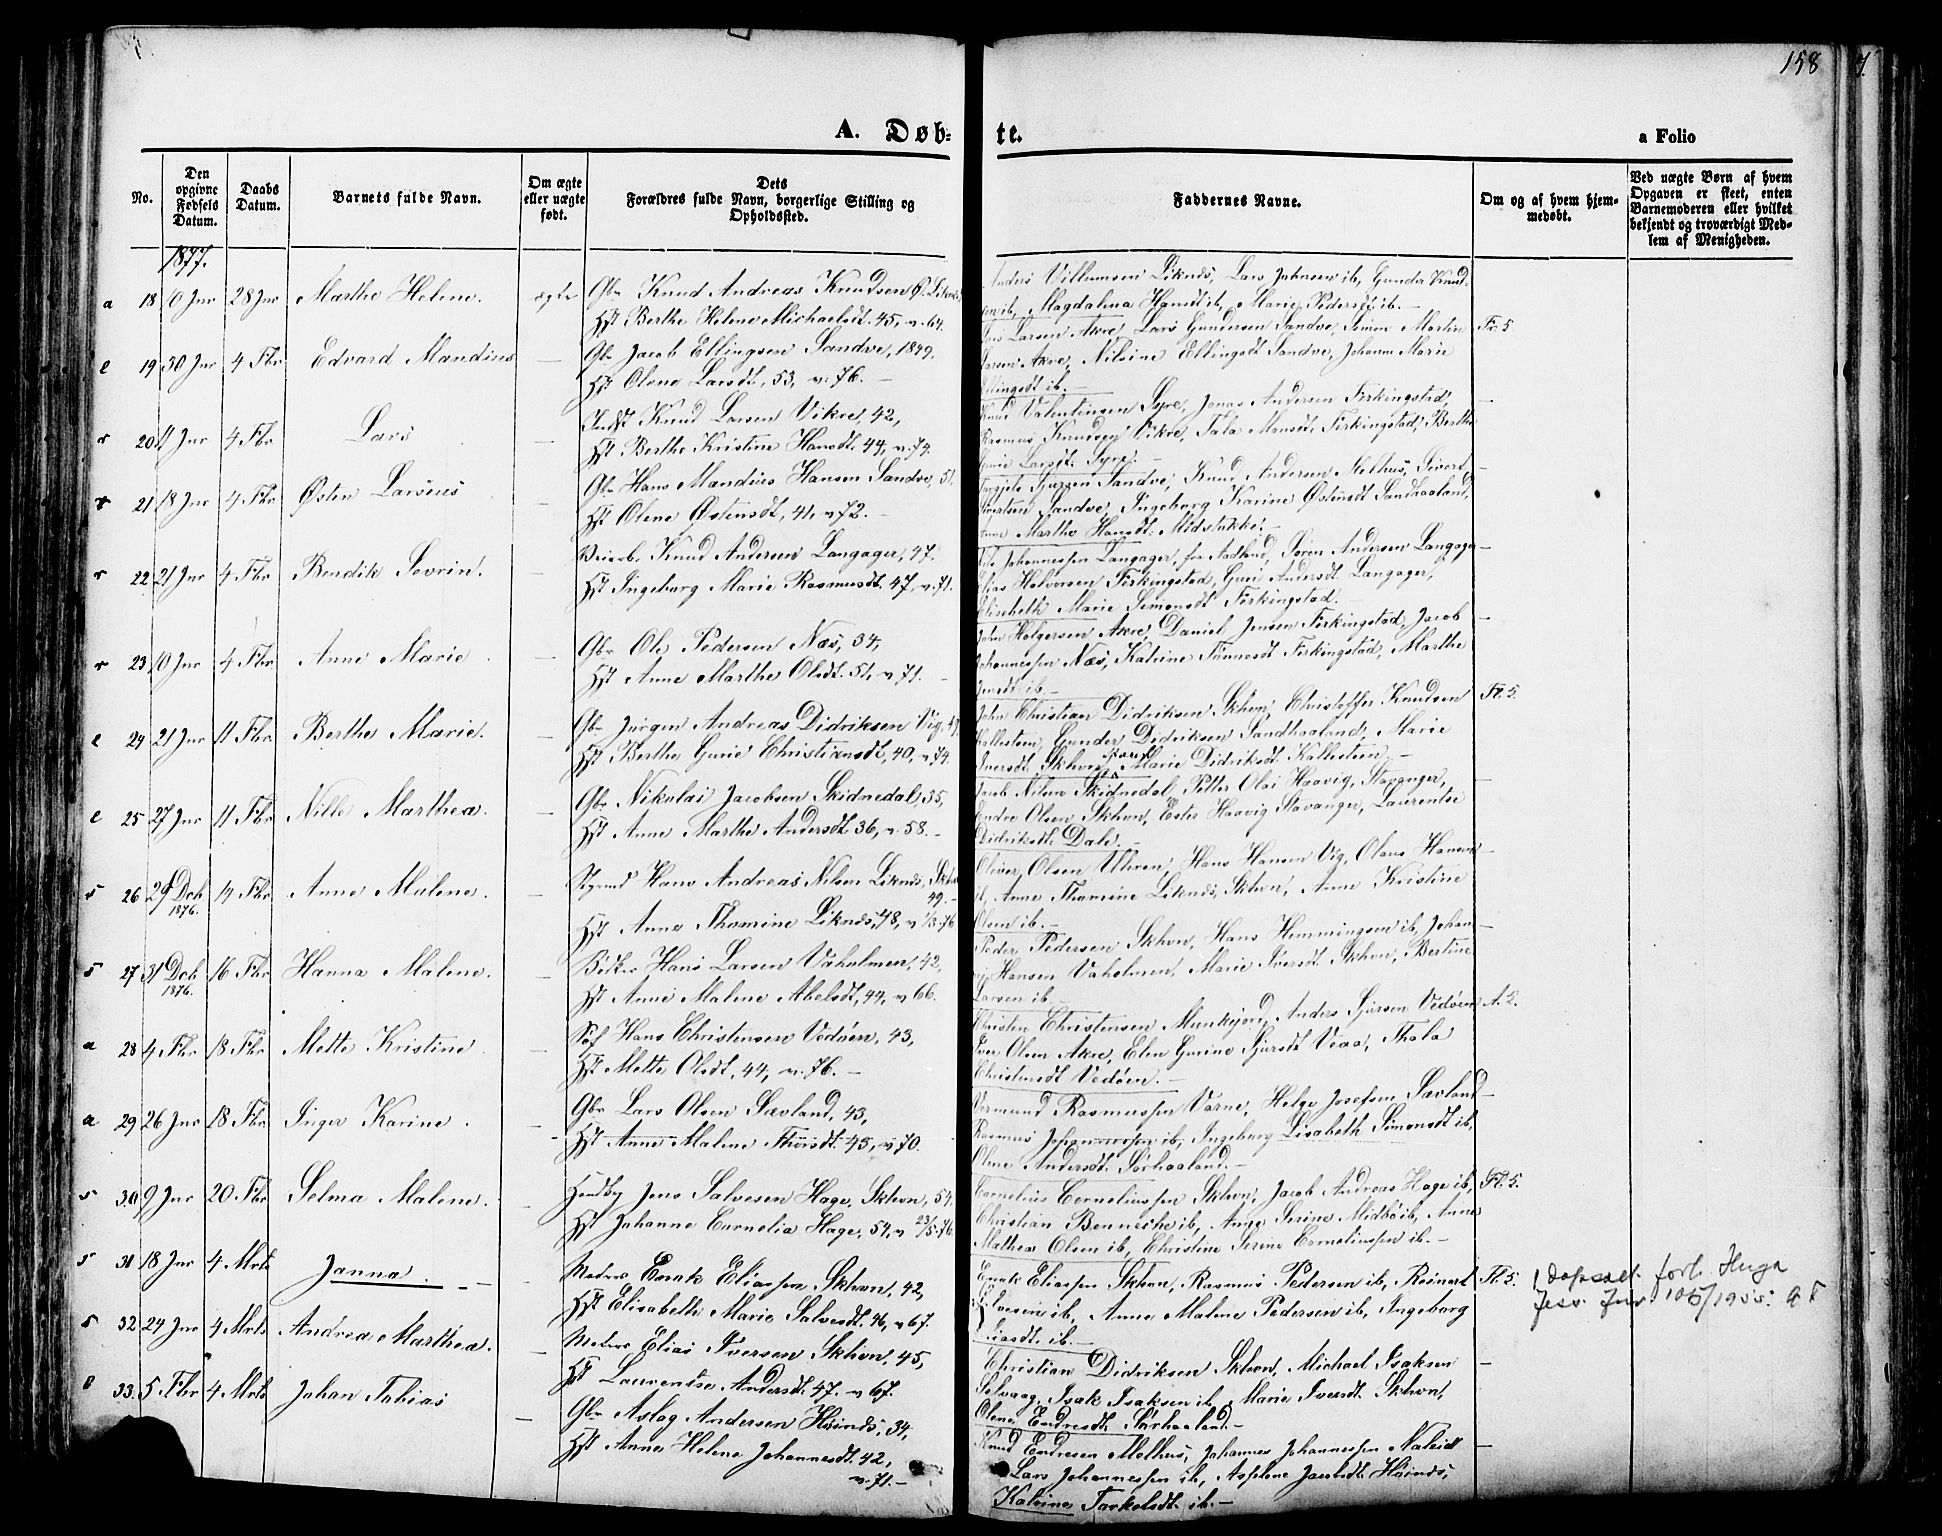 158
A. Døb-
te.
a Folio
No.
Den opgivne Fødsels Datum.
Daabs Datum.
Barnets fulde Navn.
Om ægte eller uægte født.
Dets Forældres fulde Navn, borgerlige Stilling og Opholdssted.
Faddernes Navne.
Om og af hvem hjemmedøbt.
Ved uægte Børn af hvem Opgaven er skeet, enten Barnemoderen eller hvilket bekjendt og troværdigt Medlem af Menigheden.
1877.
a 18 10 Jnr 28 Jnr Marthe Helene. ægte Gbr Knud Andreas Knudsen Ø. Liknes,
Hst Berthe Helene Michaelsdt. 45, v. 64.
Villumsen Liknes, Lars Johnsen ib, Gunder Knud-
sen ib, Magdalena Hansdt ib, Marie Pedersdt ib.
e 19 30 Jnr 4 Fbr Edvard Mandius — Gbr Jacob Ellingsen Sandve, 1849.
Hst Olene Larsdt, 53, v. 76. —
Larsen Akre, Lars Gundersen Sandve, Simon Martin Fr. 5.
Larsen Akre, Nilsine Ellingsdt Sandve, Johanne Marie
Ellingsdt ib. —
r 20 11 Jnr 4 Fbr Lars — Indst Knud Larsen Vikre, 42,
Hst Berthe Kristine Hansdt. 44, v. 74.
Knud Valentinsen Syre, Jonas Andersen Ferkingstad, —
Rasmus Knudsen Vikre, Tala Monsdt, Ferkingstad, Berthe
Gurie Larsdt. Syre. —
r 21 18 Jnr 4 Fbr Østen Larsens — Gbr Hans Mandius Hansen Sandve, 51.
Hst Olene Østensdt, 41, v 72. —
Sjursen Sandve, Knud Andersen Melhus, Sivert —
Sivertsen Sandve, Ingeborg Karine Østensdt Sandhaaland,
Anne Marthe Hansdt. Midstokke. —
r 22 21 Jnr 4 Fbr Bendik Sevrin. — Knud Andersen Langager, 47.
Hst Ingeborg Marie Rasmusdt. 47, v. 71.
Johannessen Langager, fra Aadland, Søren Andersen Langager —
Elias Halvorsen Ferkingstad, Guri Andersdt. Langager,
Elisabeth Marie Simonsdt Ferkingstad. —
r 23 10 Jnr 4 Fbr Anne Marie — Gbr Ole Pedersen Næs, 34,
Hst Anne Marthe Olsdt. 51, v 71. —
John Holgersen Akre, Daniel Jensen Ferkingstad, Jacob —
Johannessen Næs, Katrine Tønnesdt Ferkingstad, Marthe
Jensdt ib. —
e 24 21 Jnr 11 Fbr Berthe Marie. — Gbr Jørgen Andreas Didriksen Vig, 49,
Hst Berthe Gurie Christiansdt, 40, v. 74.
John Christian Didriksen Skhvn, Christoffer Knudsen Fl. 5.
Kallesten, Gunder Didriksen Sandhaaland, Marie
Iversdt. Skhvn, Marie Didriksdt. Kallesten. —
e 25 27 Jnr 11 Fbr Nille Marthea. — Gbr Nikolai Jacobsen Skidnedal, 35,
Hst Anne Marthe Andersdt 36, v. 58. —
Jacob Nilsen Skidnedal, Petter Olai Haavig, Stavanger, —
Endre Olsen Skhvn, Ester Haavig Stavanger, Laurentse
Didriksdt. Dale. —
s 26 29 Dcb 1876. 14 Fbr Anne Malene. — Hans Andreas Nilsen Liknes, Skhvn 49. —
Hst Anne Thomine Liknes, 48, v 1/3. 76
Oliver Olsen Uthren, Hans Hansen Vig, Olaus Hansen —
ib, Anne Thomine Liknes, Skhvn, Anne Kristine
Olsen ib. —
s 27 31 Dcb 1876. 16 Fbr Hanna Malene. — Bødker Hans Larsen Vaholmen, 42,
Hst Anne Malene Abelsdt, 44, v 66.
Peder Pedersen Skhvn, Hans Hemmingsen ib, Johan —
Hansen Vaholmen, Marie Iversdt. Skhvn, Bertine
Larsen ib. —
a 28 4 Fbr 18 Fbr Mette Kristine. — Søf Hans Christensen Vedøen, 43,
Hst Mette Olsdt, 44, v. 76. —
Christen Christensen Munkejord, Anders Sjursen Vedøen, A. 2.
Iver Olsen Akre, Elen Gurine Sjursdt Veaa, Thala
Christensdt Vedøen. —
a 29 26 Jnr 18 Fbr Inger Karine. — Gbr Lars Olsen Sævland, 43,
Hst Anne Malene Thorsdt. 45, v 70.
Vermund Rasmussen Varne, Helge Josefsen Sævland —
Rasmus Johannessen ib, Ingeborg Lisabeth Simonsdt ib,
Olene Andersdt. Sørhaaland. —
s 30 9 Jnr 20 Fbr Selma Malene. — Jens Salvesen Hage, Skhvn, 54,
Hst Johanne Cornelia Hage, 54, v 23/5. 76.
Cornelius Corneliussen Skhvn, Jacob Andreas Hage ib, Fl. 5.
Christian Benneche ib, Anne Serine Midbø ib, Anne
Mathea Olsen ib, Christine Serine Corneliussen ib. —
s 31 18 Jnr 4 Mrts Janna. — Enok Eliassen Skhvn, 42,
Hst Elisabeth Marie Salvesdt, 46, v 67.
Enok Eliassen Skhvn, Rasmus Pedersen ib, Reinert Fl. 5.
ib, Anne Malene Pedersen ib, Ingeborg
Eliasdt. ib. —
forl. Haga
1955.
s 32 24 Jnr 4 Mrts Andrea Marthea. — Elias Iversen Skhvn, 45,
Hst Laurentse Andersdt. 47. v 67.
Christian Didriksen Skhvn, Michael Isaksen —
Selvaag, Isak Isaksen ib, Marie Iversdt. Skhvn,
Olene Endresdt. Sørhaaland. —
e 33. 5 Fbr 4 Mrts Johan Tobias — Gbr Aslag Andersen Høines, 34,
Hst Anne Helene Johannesdt. 42,
v. 71. —
Knud Endresen Melhus, Johannes Johannessen —
Lars Johannessen ib, Høines,
Katrine Torkelsdt. ib. —